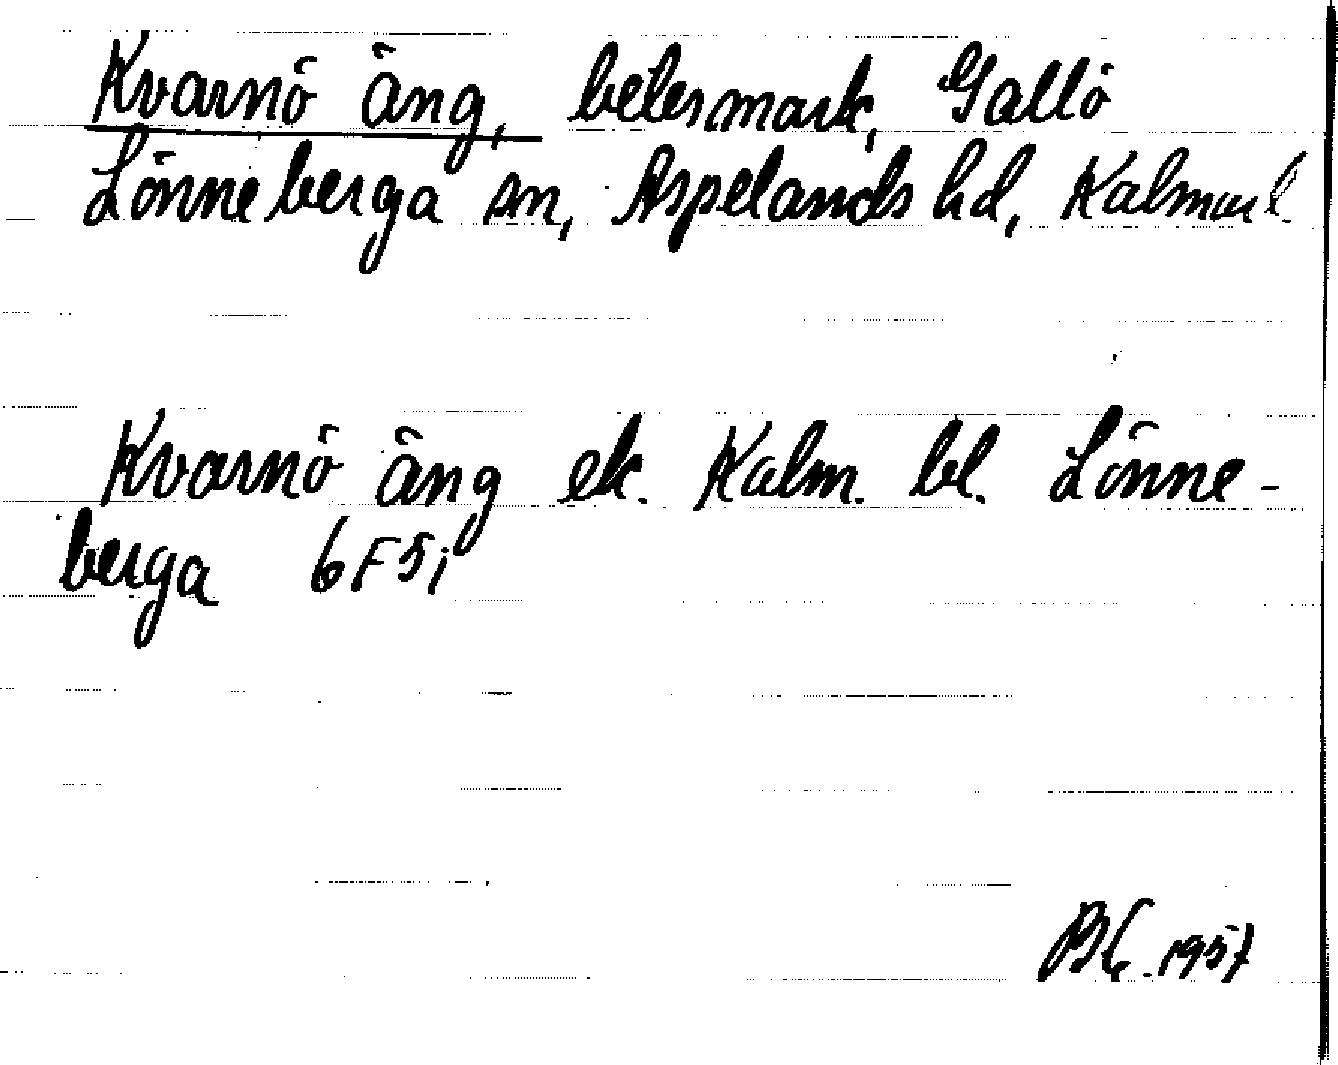 Kvarnö äng, betesmark, Gallö
Lönneberga sn, Aspelands hd, Kalmar l.
Kvarnö äng ek. Kalm. bl. Lönne-
berga 6F5i
1957